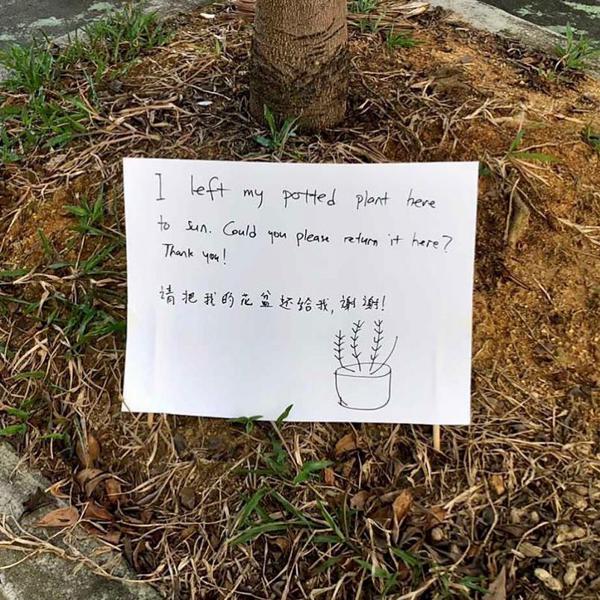 I left my potted plant here
to sun. Could you please return it here?
Thank you!
请把我的花盆还给我,谢谢!